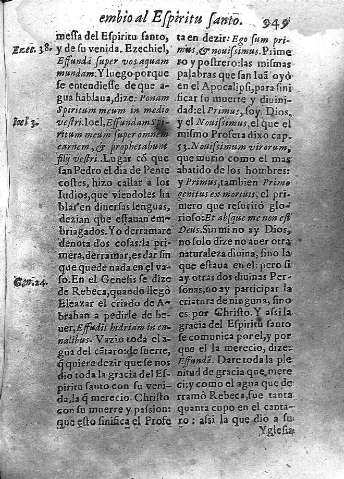 embio al Espiritu santo. 949
messa del Espiritu santo,
Ezec. 38.
y de su venida. Ezechiel,
Effundā super vos aquam
mundam. Y luego porque
se entendiesse de que a-
gua hablaua, dize: Ponam
Spiritum meum in medio
Ioel 3.
vestri. Ioel, Effundam spi-
ritum meum super omnem
carnem, & prophetabunt
filij vestri. Lugar cō que
san Pedro el dia de Pente
costes, hizo callar a los
Iudios, que viendoles ha
blar en diuersas lenguas,
dezian que estauan em-
briagados. Yo derramarè
denota dos cosas: la pri-
mera, derramar, es dar sin
que quede nada en el va-
Gen. 24.
so. En el Genesis se dize
de Rebeca, quando llegò
Eleazar el criado de A-
braham a pedirle de be-
uer, Effudit hidriam in ca-
nalibus. Vazio toda el a-
gua del cātaro: de suerte,
q̄ quiere dezir que se nos
dio toda la gracia del Es-
piritu santo con su veni-
da, la q̄ merecio Christo
con su muerte y passion:
que esto sinifica el Profe
ta en dezir: Ego sum pri-
mus, & nouissimus. Prime
ro y postrero: las mismas
palabras que san Iuā oyò
en el Apocalipsi, para sini
ficar su muerte y diuini-
dad: el Primus, soy Dios,
y el Nouissimus, el que el
mismo Profeta dixo cap.
53. Nouissimum virorum,
que murio como el mas
abatido de los hombres:
y Primus, tambien Primo
genitus ex mortuis, el pri-
mero que resucitò glo-
rioso: Et absque me non est
Deus. Sin mi no ay Dios,
no solo dize no auer otra
naturaleza diuina, sino la
que estaua en el: pero si
ay otras dos diuinas Per-
sonas, no ay participar la
criatura de ninguna, sino
es por Christo. Y assi la
gracia del Espiritu santo
se comunica por el, y por
que el la merecio, dize:
Effundā. Dare toda la ple
nitud de gracia que, mere
ci: y como el agua que de
rramò Rebeca, fue tanta
quanta cupo en el canta-
ro: assi la que dio a su
Yglesia